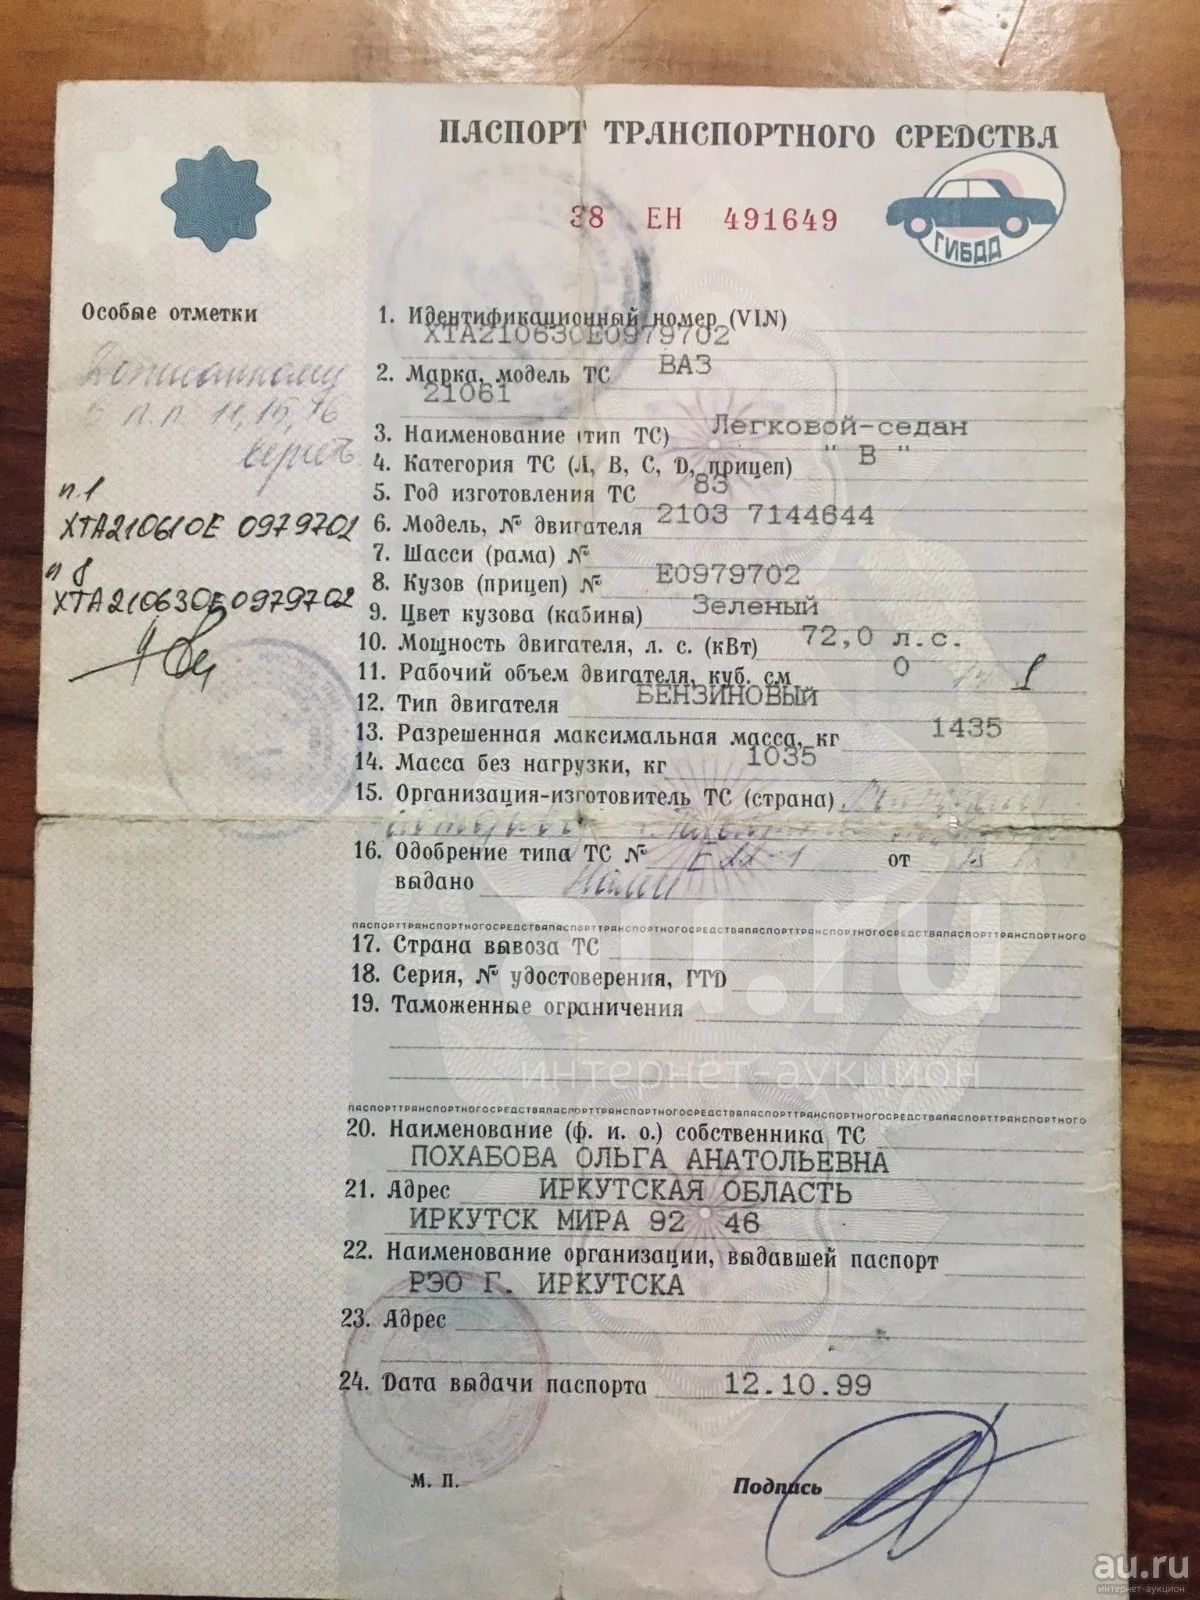 ПАСПОРТ ТРАНСПОРТНОГО СРЕДСТВА
38 ЕН 491649
ГИБДД
Особые отметки
п.п. 11, 15, 16
п 1
ХТА210610Е 0979701
п 8
ХТА210630Е0979702
1. Идентификационный номер (VIN)
ХТА210630Е0979702
2. Марка, модель ТС ВАЗ
21061
3. Наименование (тип ТС) Легковой-седан
4. Категория ТС (А, В, С, D, прицеп) " В "
5. Год изготовления ТС 83
6. Модель, № двигателя 2103 7144644
7. Шасси (рама) №
8. Кузов (прицеп) № Е0979702
9. Цвет кузова (кабины) Зеленый
10. Мощность двигателя, л. с. (кВт) 72,0 л.с.
11. Рабочий объем двигателя, куб. см 0
12. Тип двигателя БЕНЗИНОВЫЙ
13. Разрешенная максимальная масса, кг 1435
14. Масса без нагрузки, кг 1035
15. Организация-изготовитель ТС (страна)
16. Одобрение типа ТС № от
выдано
ПАСПОРТТРАНСПОРТНОГОСРЕДСТВАПАСПОРТТРАНСПОРТНОГОСРЕДСТВАПАСПОРТТРАНСПОРТНОГОСРЕДСТВАПАСПОРТТРАНСПОРТНОГО
17. Страна вывоза ТС
18. Серия, № удостоверения, ГТD
19. Таможенные ограничения
au.ru
интернет-аукцион
ПАСПОРТТРАНСПОРТНОГОСРЕДСТВАПАСПОРТТРАНСПОРТНОГОСРЕДСТВАПАСПОРТТРАНСПОРТНОГОСРЕДСТВАПАСПОРТТРАНСПОРТНОГО
20. Наименование (ф. и. о.) собственника ТС
ПОХАБОВА ОЛЬГА АНАТОЛЬЕВНА
21. Адрес ИРКУТСКАЯ ОБЛАСТЬ
ИРКУТСК МИРА 92 46
22. Наименование организации, выдавшей паспорт
РЭО Г. ИРКУТСКА
23. Адрес
24. Dата выдачи паспорта 12.10.99
М. П.
Подпись
au.ru
интернет-аукцион